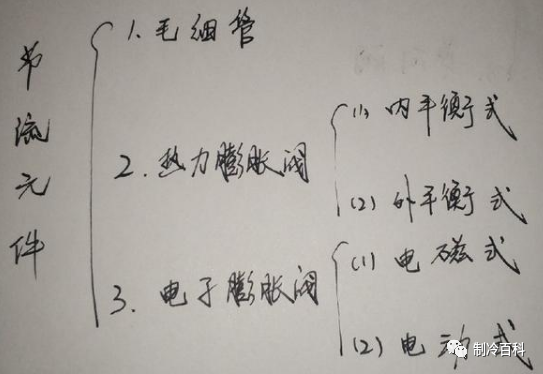 节流元件
1. 毛细管
2. 热力膨胀阀
(1) 内平衡式
(2) 外平衡式
3. 电子膨胀阀
(1) 电磁式
(2) 电动式
制冷百科